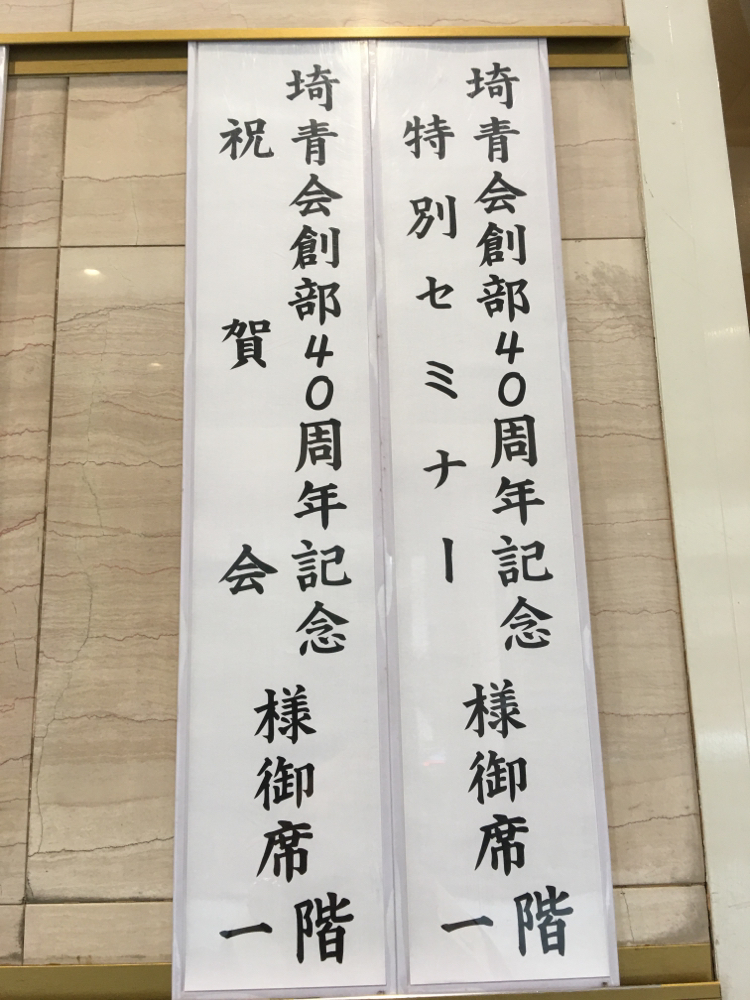 埼青会創部40周年記念
特別セミナー
様御席
一階
埼青会創部40周年記念
祝賀会
様御席
一階